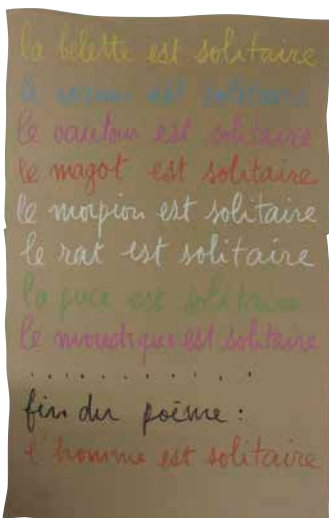 la belette est solitaire
le est solitaire
le vautour est solitaire
le magot est solitaire
le morpion est solitaire
le rat est solitaire
la puce est solitaire
le moustique est solitaire
. . . . . . . . . . .
fin du poème :
l'homme est solitaire